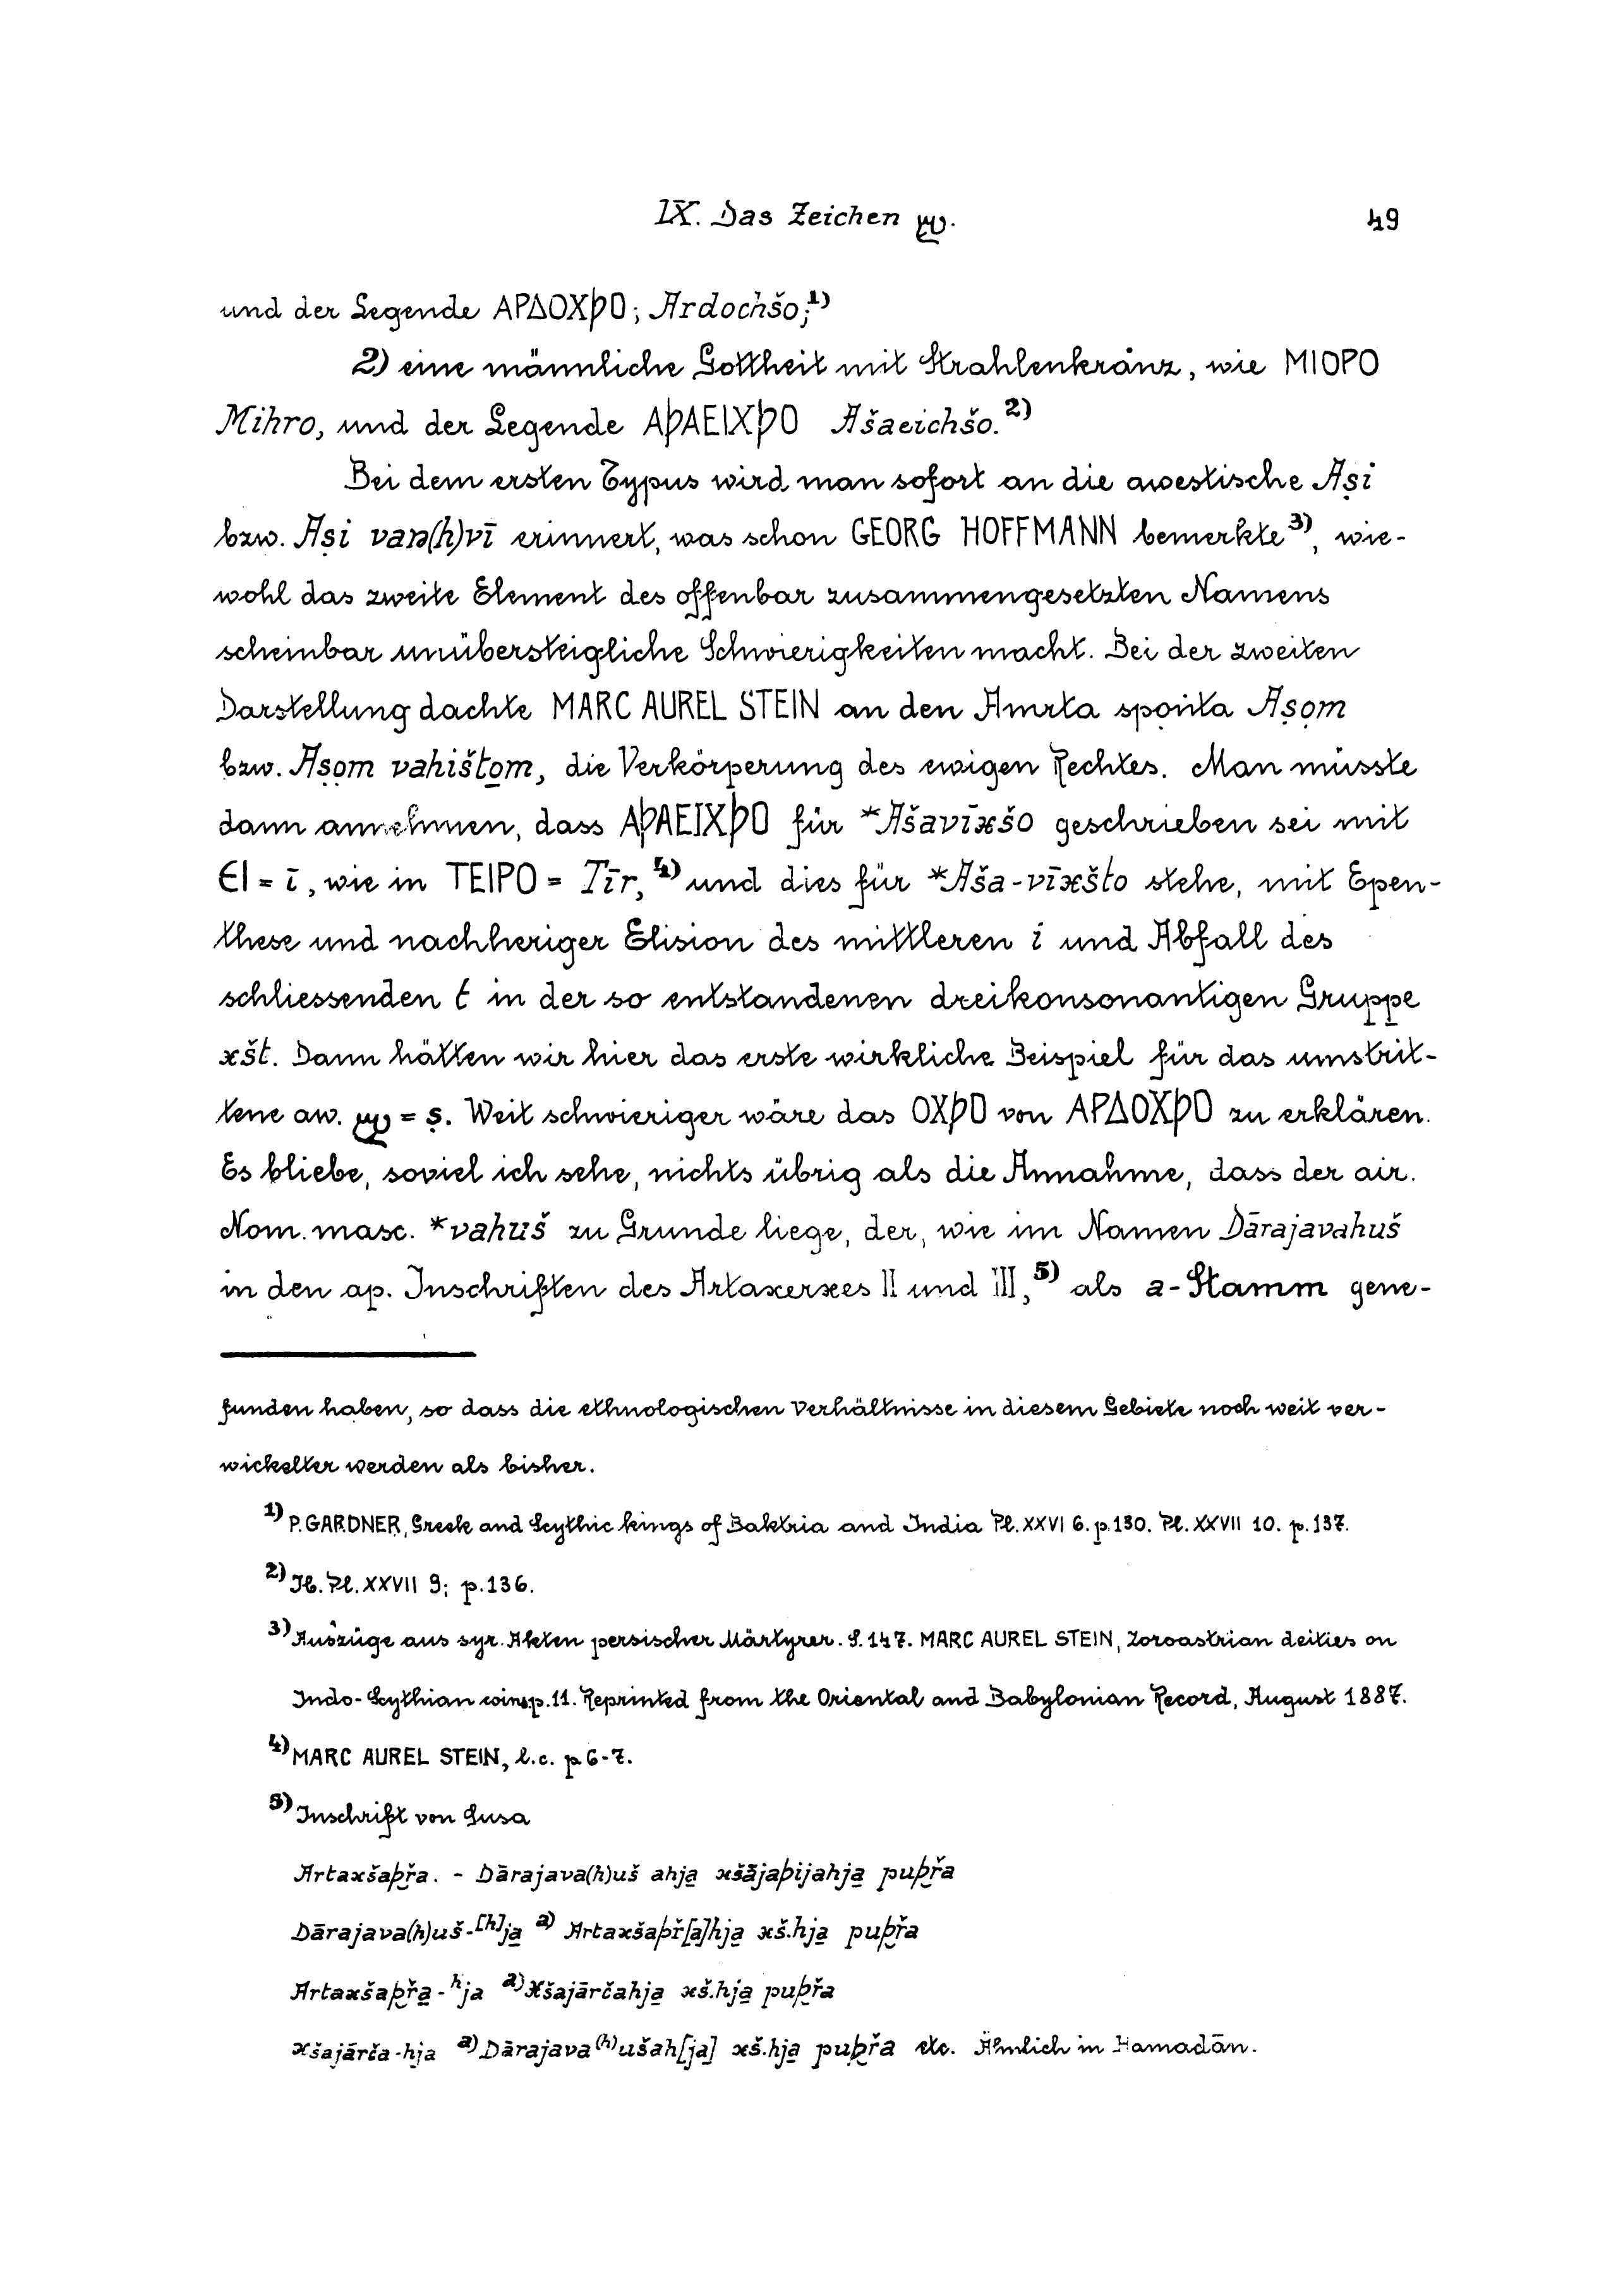 IX. Das Zeichen 𐬴. 49
und der Legende ΑΡΔΟΧϷΟ; Ardochšo;¹⁾
2) eine männliche Gottheit mit Strahlenkranz, wie MIOPO
Mihro, und der Legende ΑϷΑΕΙΧϷΟ Ašaeichšo.²⁾
Bei dem ersten Typus wird man sofort an die awestische Aṣi
bzw. Aṣi vaṇ(h)vī erinnert, was schon GEORG HOFFMANN bemerkte³⁾, wie-
wohl das zweite Element des offenbar zusammengesetzten Namens
scheinbar unübersteigliche Schwierigkeiten macht. Bei der zweiten
Darstellung dachte MARC AUREL STEIN an den Amrta spọnta Aṣọm
bzw. Aṣọm vahištọm, die Verkörperung des ewigen Rechtes. Man müsste
dann annehmen, dass ΑϷΑΕΙΧϷΟ für *Ašavīxšo geschrieben sei mit
ЄΙ = ī, wie in ΤΕΙΡΟ = Tīr,⁴⁾ und dies für *Aša-vīxšto stehe, mit Epen-
these und nachheriger Elision des mittleren i und Abfall des
schliessenden t in der so entstandenen dreikonsonantigen Gruppe
xšt. Dann hätten wir hier das erste wirkliche Beispiel für das umstrit-
tene aw. 𐬴 = ṣ. Weit schwieriger wäre das ΟΧϷΟ von ΑΡΔΟΧϷΟ zu erklären.
Es bliebe, soviel ich sehe, nichts übrig als die Annahme, dass der air.
Nom. masc. *vahuš zu Grunde liege, der, wie im Namen Dārajavahuš
in den ap. Inschriften des Artaxerxes II und III,⁵⁾ als a-Stamm gene-
funden haben, so dass die ethnologischen Verhältnisse in diesem Gebiete noch weit ver-
wickelter werden als bisher.
¹⁾ P. GARDNER, Greek and Scythic kings of Baktria and India Pl. XXVI 6. p. 130. Pl. XXVII 10. p. 137.
²⁾ Ib. Pl. XXVII 9; p. 136.
³⁾ Auszüge aus syr. Akten persischer Märtyrer. S. 147. MARC AUREL STEIN, Zoroastrian deities on
Indo-Scythian coins p. 11. Reprinted from the Oriental and Babylonian Record, August 1887.
⁴⁾ MARC AUREL STEIN, l.c. p 6-7.
⁵⁾ Inschrift von Susa
Artaxšaþř̮a. - Dārajava(h)uš ahja̱ xšājaþijahja̱ puþř̮a
Dārajava(h)uš-[h]ja̱ ᵃ⁾ Artaxšaþř[a]hja̱ xš.hja̱ puþř̮a
Artaxšaþř̮a̱-ʰja ᵃ⁾ Xšajārčahja̱ xš.hja̱ puþř̮a
Xšajārča-hja ᵃ⁾ Dārajava⁽ʰ⁾ušah[ja] xš.hja̱ puþř̮a etc. Ähnlich in Hamadān.